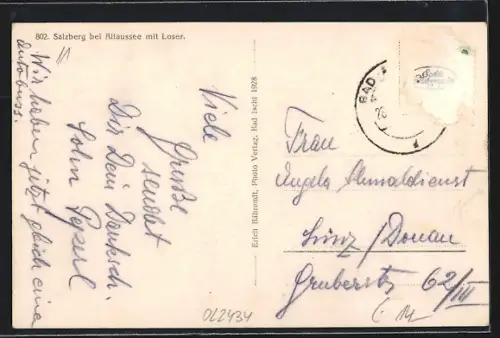 802. Salzberg bei Altaussee mit Loser.
Viele
Grüße
sendet
Dir Dein Dankich.
Sohn Peperl
Wir haben jetzt gleich eine
Autobuss.
Erich Bährendt, Photo Verlag, Bad Ischl 1928
BAD
Frau
Angela
Linz/Donau
Gruberstr. 62/III
042434